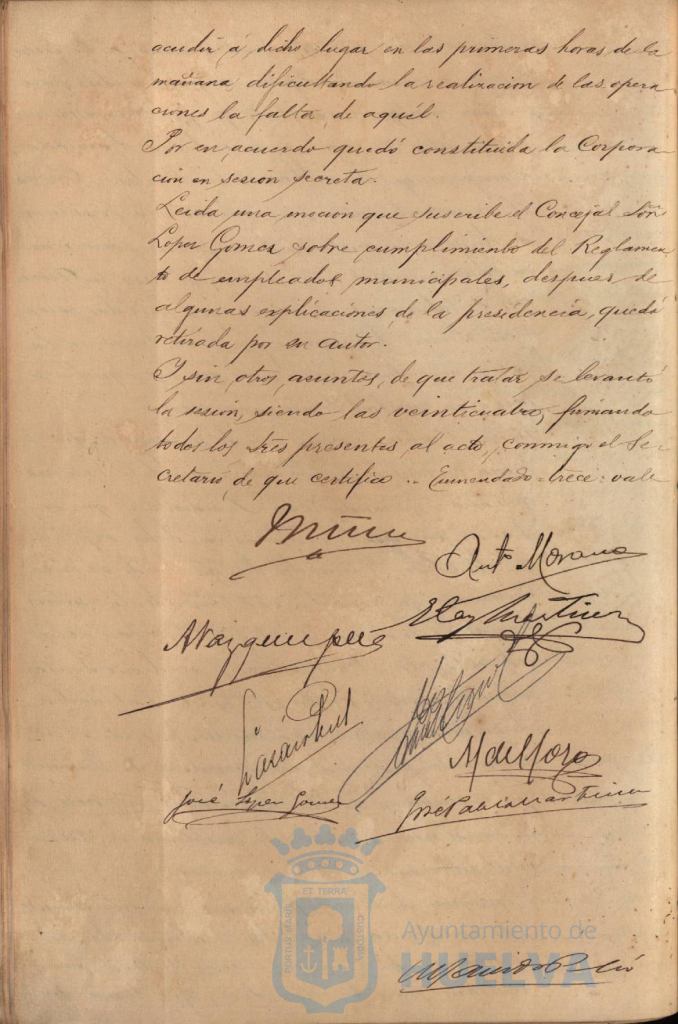 acudir á dicho lugar en las primeras horas de la
mañana dificultando la realizacion de las opera
ciones la falta de aquél.
Por en acuerdo quedó constituida la Corpora-
ción en sesión secreta.
Leida una moción que suscribe el Concejal Sōr
Lopez Gomez sobre cumplimiento del Reglamen
to de empleados municipales, despues de
algunas explicaciones de la presidencia, quedó
retirada por su autor.
Y sin otros asuntos de que tratar se levantó
la sesión, siendo las veinticuatro, firmando
todos los Sres presentes al acto, conmigo el Se-
cretario, de que certifico .. Enmendado = trece: vale
Antº Morano
Eloy Martinez
A Vazquez
Lázaro
M del Hoyo
José Lopez Gomez
José Pablo Martinez
ET TERRA
PORTUS MARIS
CUSTODIA
Ayuntamiento de
HUELVA